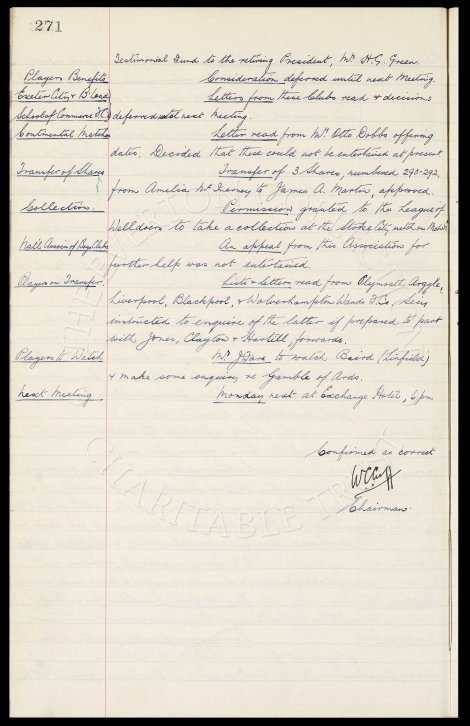 271
Testimonial Fund to the retiring President, Mr. H.G. Green.
Players Benefits Consideration deferred until next Meeting.
Exeter City & B'Lead Letters from these Clubs read & decisions
School of Commerce F.C. deferred until next Meeting.
Continental Matches Letter read from Mr. Otto Dobbs offering
dates. Decided that these could not be entertained at present
Transfer of Shares Transfer of 3 Shares, numbered 290-292,
from Amelia McInerney to James A. Martin, approved.
Collection. Permission granted to the League of
Welldoers to take a collection at the Stoke City match on
Natl. Assocn of Boys Clubs An appeal from this Association for
further help was not entertained.
Players on Transfer Lists & letters read from Plymouth Argyle,
Liverpool, Blackpool, & Wolverhampton Wands F.C. Secy
instructed to enquire of the latter if prepared to part
with Jones, Clayton & Hartill, forwards.
Players to Watch Mr. J. Gare to watch Baird (Linfield)
& make some enquiry re Gamble of Ards.
Next Meeting Monday next at Exchange Hotel, 6 pm.
Confirmed as correct
W.C. Cuff
Chairman.
CHARITABLE TRUST